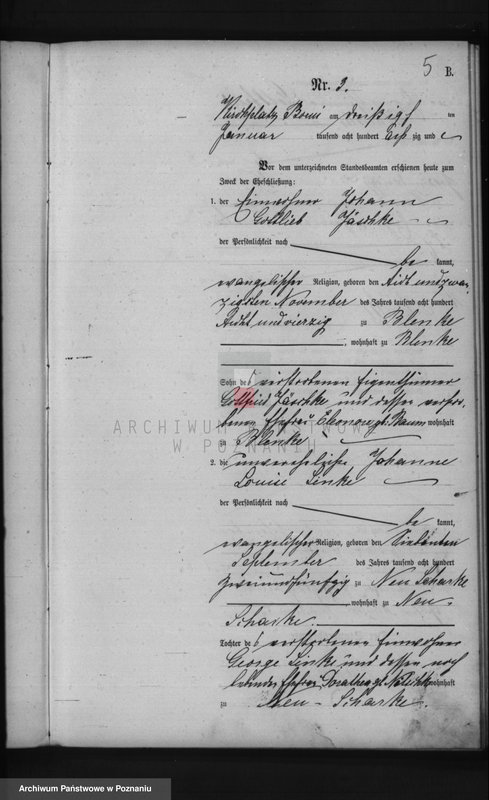 5 B.
Nr. 3.
Kirchplatz Bomst am dreißigsten
Januar tausend acht hundert zig und
Vor dem unterzeichneten Standesbeamten erschienen heute zum
Zweck der Eheschließung:
1. der Einwohner Johann
Gottlieb Jäschke
der Persönlichkeit nach
be kannt,
evangelischer Religion, geboren den Acht und zwan-
zigsten November des Jahres tausend acht hundert
Acht und vierzig zu Blenke
, wohnhaft zu Blenke
Sohn des verstorbenen Eigenthümer
Gottfried Jäschke und dessen verstor-
benen Ehefrau Eleonore geb. Baum wohnhaft
zu Blenke
ARCHIWUM PAŃSTWOWE
W POZNANIU
2. die unverehelichte Johanne
Louise Linke
der Persönlichkeit nach
be kannt,
evangelischer Religion, geboren den Siebenten
September des Jahres tausend acht hundert
zweiundfünfzig zu Neu Scharke
, wohnhaft zu Neu-
Scharke.
Tochter des verstorbenen Einwohner
George Linke und dessen noch
lebenden Ehefrau Dorothea geb. wohnhaft
zu Neu-Scharke.
Archiwum Państwowe w Poznaniu